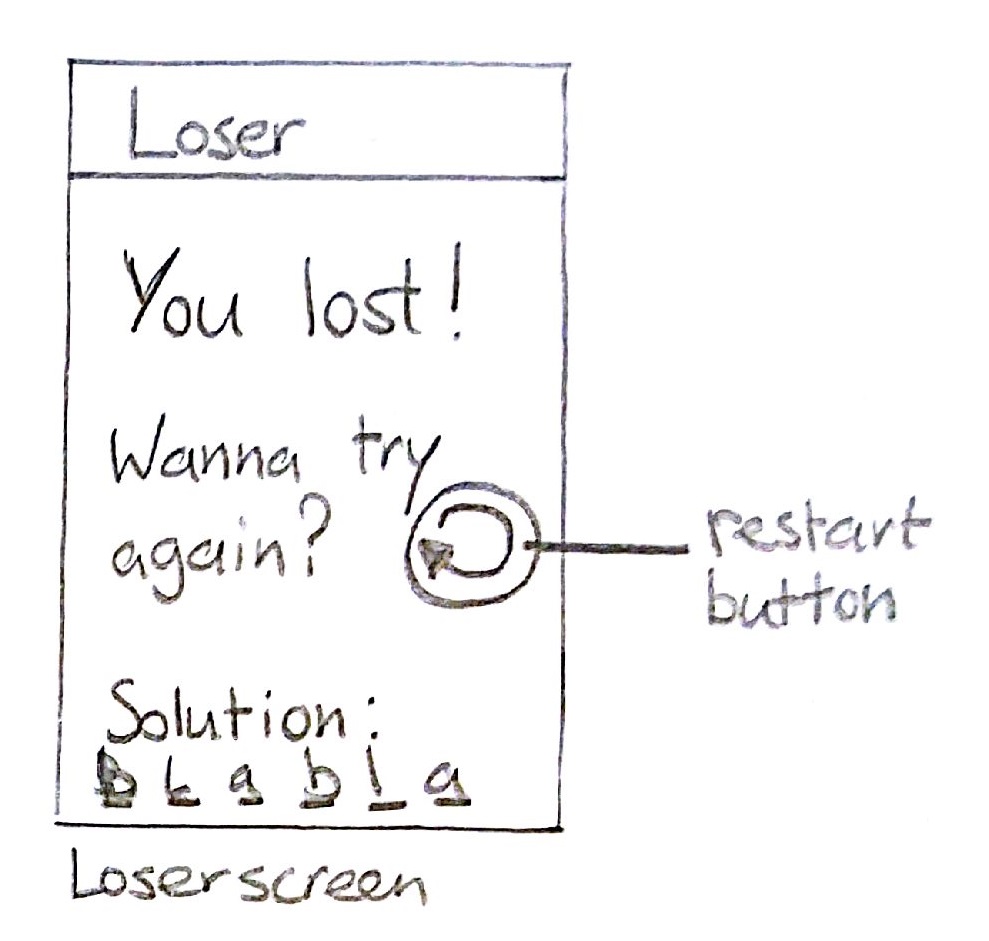 Loser
You lost!
Wanna try
again?
restart
button
Solution:
b L a b l a
Loserscreen